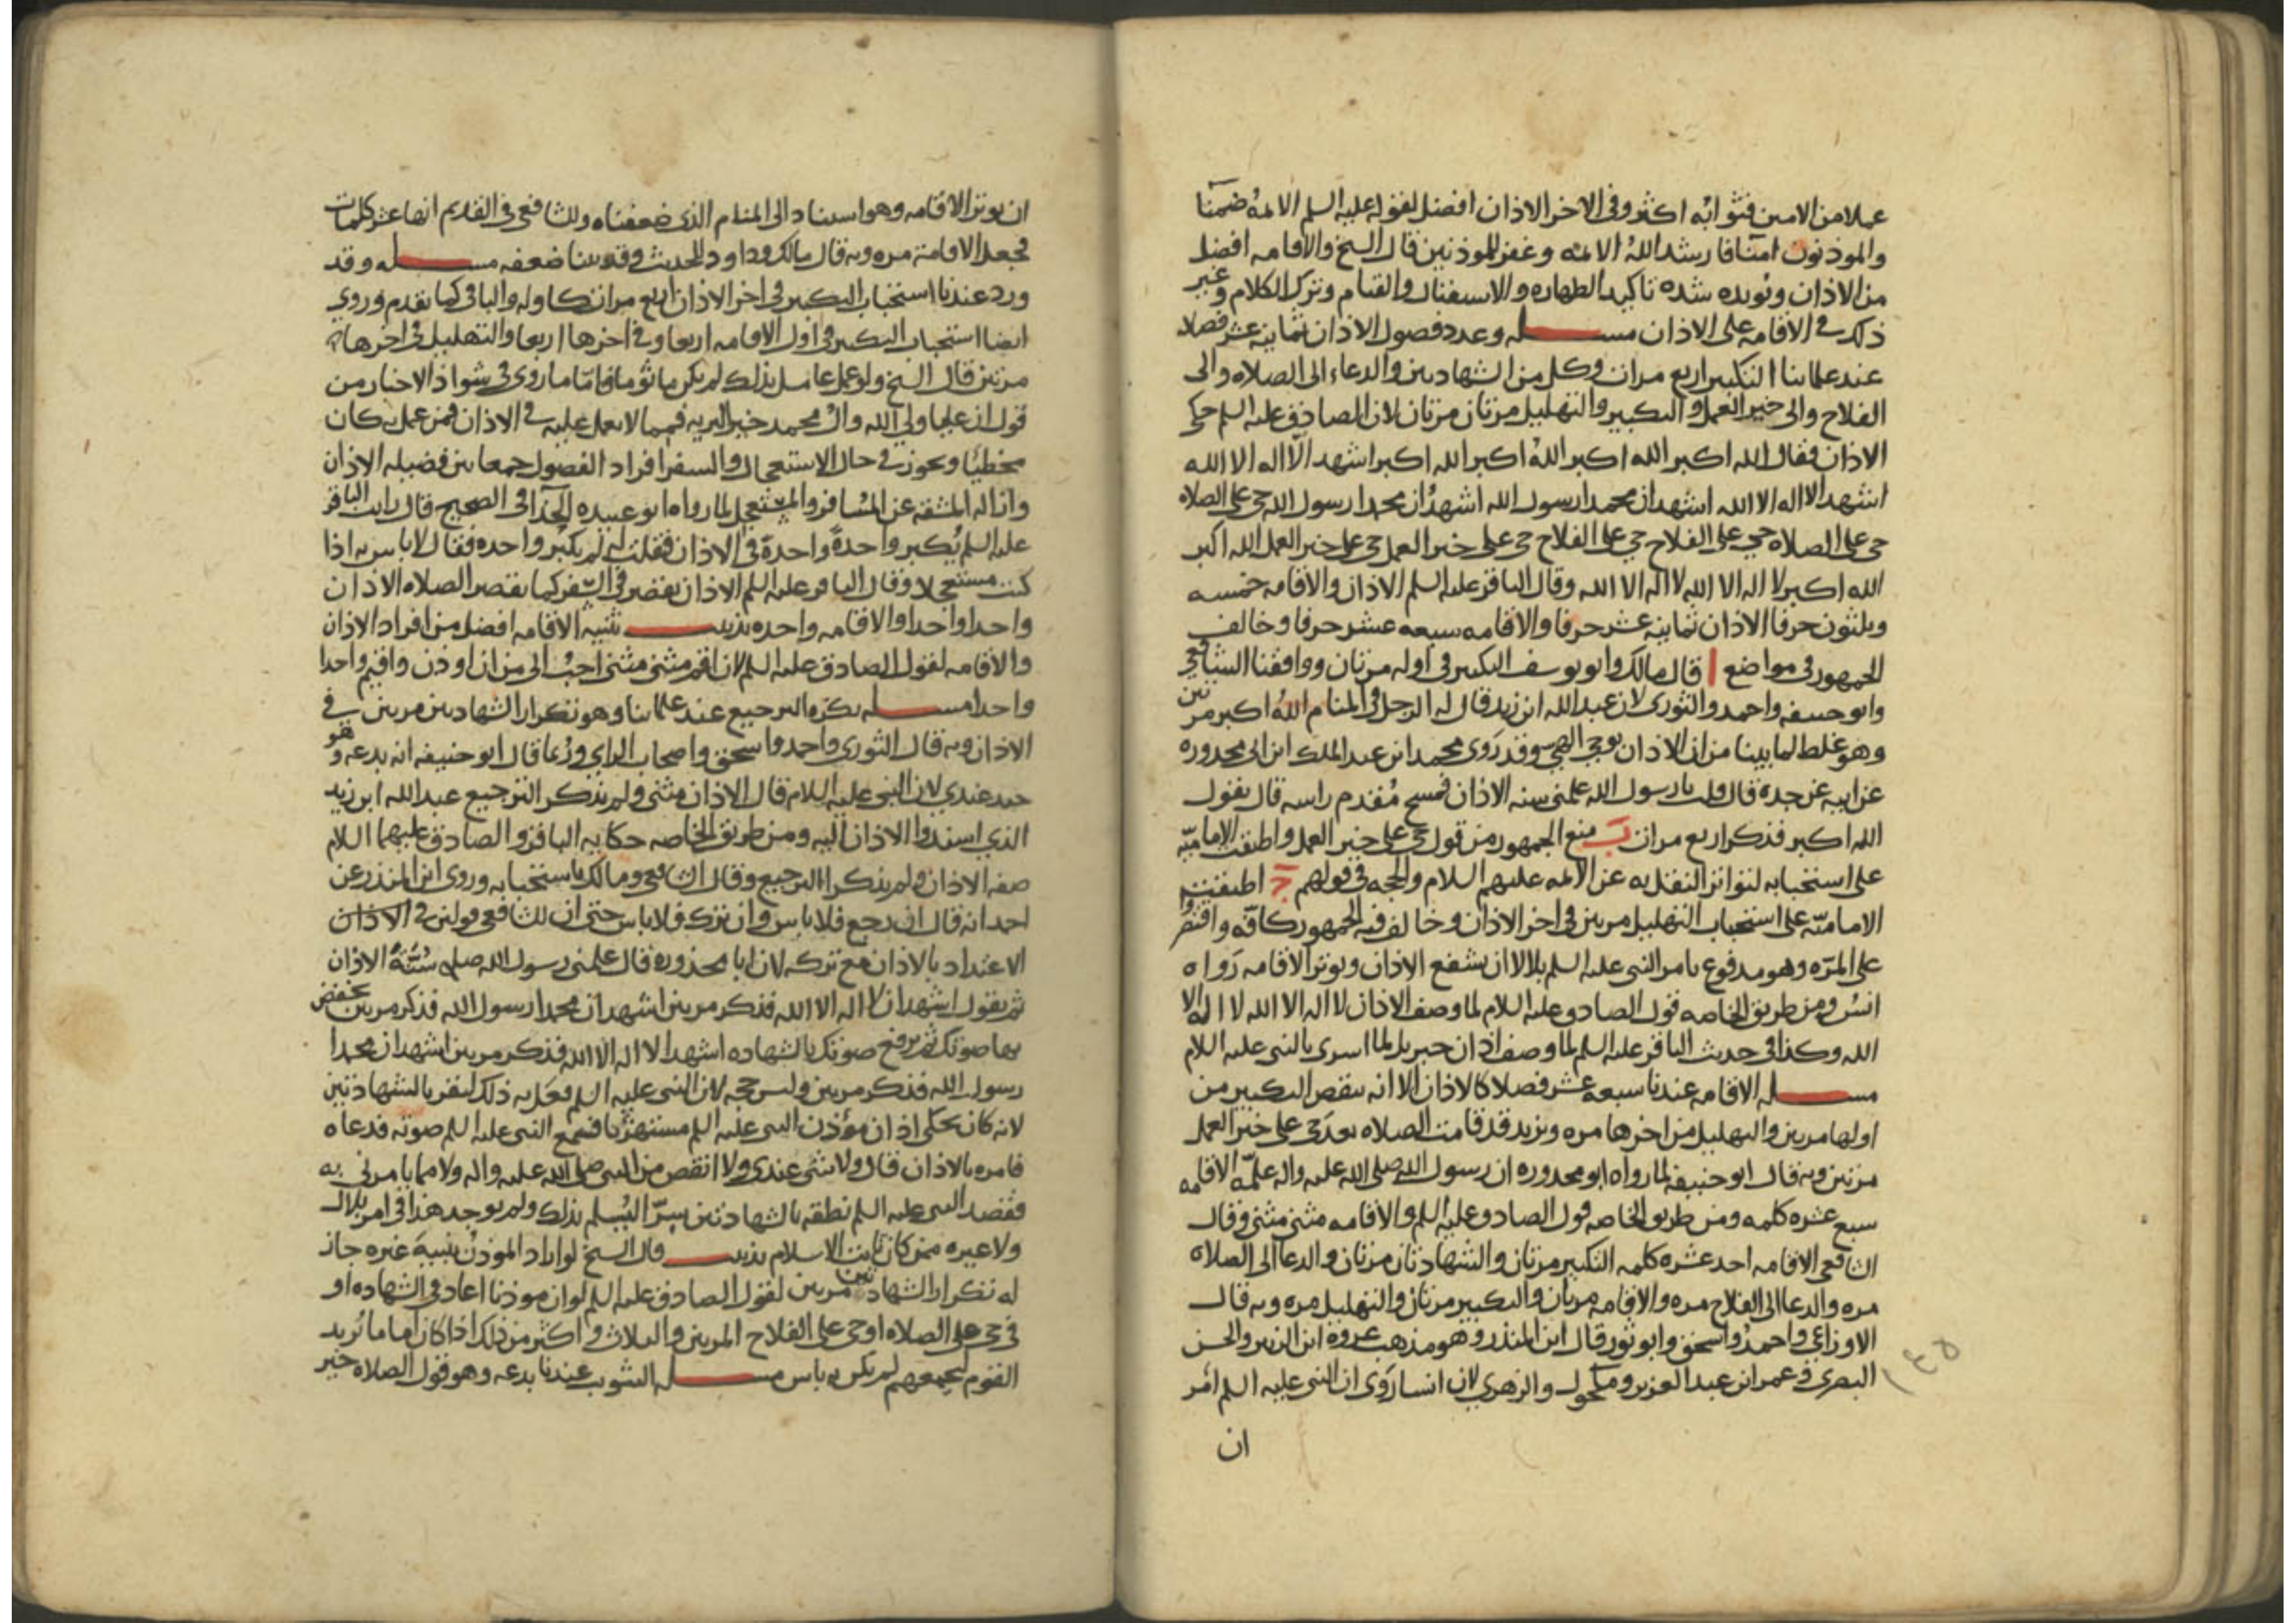 عملا من الامين فثوابه اكثر وفي الاخر الاذان افضل لقوله عليه السلم الايمة ضمنا
والموذنون امنا فارشد الله الايمه وغفر للموذنين قال الشيخ والاقامه افضل
من الاذان ويؤيده شده تاكيد الطهاره والاستقبال والقيام وترك الكلام وغير
ذلك في الاقامه على الاذان مسـله وعدد فصول الاذان ثمانيه عشر فصلا
عند علماينا التكبير اربع مرات وكل من الشهادتين والدعاء الى الصلاه والى
الفلاح والى خير العمل والتكبير والتهليل مرتان مرتان لان الصادق عليه السلم حكى
الاذان فقال الله اكبر الله اكبر الله اكبر الله اكبر اشهد الا اله الا الله
اشهد الا اله الا الله اشهد ان محمدا رسول الله اشهد ان محمدا رسول الله حي على الصلاه
حي على الصلاه حي على الفلاح حي على الفلاح حي على خير العمل حي على خير العمل الله اكبر
الله اكبر لا اله الا الله لا اله الا الله وقال الباقر عليه السلم الاذان والاقامه خمسه
وثلثون حرفا الاذان ثمانيه عشر حرفا والاقامه سبعه عشر حرفا وخالف
الجمهور في مواضع ا قال مالك وابو يوسف التكبير في اوله مرتان ووافقنا الشافعي
وابو حنيفه واحمد والثوري لان عبدالله ابن زيد قال له الرجل في المنام الله اكبر مرتين
وهو غلط لما بينا من ان الاذان بوحي الهي وقد روى محمد ابن عبد الملك ابن ابي محذوره
عن ابيه عن جده قال قلت يا رسول الله علمني سنه الاذان فمسح مقدم راسه قال تقول
الله اكبر فذكر اربع مرات ب منع الجمهور من قول حي على خير العمل واطبقت الاماميه
على استحبابه لتواتر النقل به عن الايمه عليهم السلام والحجه في قولهم ج اطبقت
الاماميه على استحباب التهليل مرتين في اخر الاذان وخالف فيه الجمهور كافه واقتصروا
على المره وهو مدفوع بامر النبي عليه السلم بلالا ان يشفع الاذان ويوتر الاقامه رواه
انس ومن طريق الخاصه قول الصادق عليه السلام لما وصف الاذان لا اله الا الله لا اله الا
الله وكذا في حديث الباقر عليه السلم لما وصف اذان جبريل لما اسرى بالنبي عليه السلام
مسـله الاقامه عندنا سبعه عشر فصلا كالاذان الا انه ينقص التكبير من
اولها مرتين والتهليل من اخرها مره ويزيد قد قامت الصلاه بعد حي على خير العمل
مرتين وبه قال ابو حنيفه لما رواه ابو محذوره ان رسول الله صلى الله عليه واله علمه الاقامه
سبع عشره كلمه ومن طريق الخاصه قول الصادق عليه السلم والاقامه مثنى مثنى وقال
الشافعي الاقامه احد عشره كلمه التكبير مرتان والشهادتان مرتان والدعا الى الصلاه
مره والدعا الى الفلاح مره والاقامه مرتان والتكبير مرتان والتهليل مره وبه قال
الاوزاعي واحمد واسحق وابو ثور قال ابن المنذر وهو مذهب عروة ابن الزبير والحسن
البصري وعمر ابن عبد العزيز ومكحول والزهري لان انسا روى ان النبي عليه السلم امر
ان
١٤٥
ان يوتر الاقامه وهو استناد الى المنام الذي ضعفناه وللشافعي في القديم انها عشر كلمات
فجعل الاقامة مره وبه قال مالك وداود للحديث وقد بينا ضعفه مسـله وقد
ورد عندنا استحباب التكبير في اخر الاذان اربع مرات كاوله والباقي كما تقدم وروي
ايضا استحباب التكبير في اول الاقامه اربعا وفي اخرها اربعا والتهليل في اخرها
مرتين قال الشيخ ولو عمل عامل بذلك لم يكن ماثوما فاما ما روي في شواذ الاخبار من
قول ان عليا ولي الله وال محمد خير البريه فمما لا يعمل عليه في الاذان فمن عمل به كان
مخطئا ويجوز في حال الاستعجال والسفر افراد الفصول جمعا بين فضيله الاذان
وازاله المشقه عن المسافر والمستعجل لما رواه ابو عبيده الحذا في الصحيح قال رايت الباقر
عليه السلم يكبر واحدة واحدة في الاذان فقلت له لم تكبر واحده فقال لا باس به اذا
كنت مستعجلا وقال الباقر عليه السلم الاذان يقصر في السفر كما يقصر الصلاه الاذان
واحدا واحدا والاقامه واحده تذنيـب تثنيه الاقامه افضل من افراد الاذان
والاقامه لقول الصادق عليه السلم لان اقيم مثنى مثنى احب الي من ان اوذن واقيم واحدا
واحدا مسـله يكره الترجيع عند علماينا وهو تكرار الشهادتين مرتين في
الاذان وبه قال الثوري واحمد واسحق واصحاب الراي وربما قال ابو حنيفه انه بدعه وهو
جيد عندي لان النبي عليه السلام قال الاذان مثنى ولم يذكر الترجيع عبد الله ابن زيد
الذي اسندوا الاذان اليه ومن طريق الخاصه حكايه الباقر والصادق عليهما السلام
صفه الاذان ولم يذكرا الترجيع وقال الشافعي ومالك باستحبابه وروى ابن المنذر عن
احمد انه قال ان رجع فلا باس وان ترك فلا باس حتى ان للشافعي قولين في الاذان
الاعتداد بالاذان مع تركه لان ابا محذوره قال علمني رسول الله صلى سنة الاذان
ثم يقول اشهد ان لا اله الا الله فذكر مرتين اشهد ان محمدا رسول الله فذكر مرتين تخفض
بها صوتك ثم ترفع صوتك بالشهاده اشهد الا اله الا الله فذكر مرتين اشهد ان محمدا
رسول الله فذكر مرتين وليس حجه لان النبي عليه السلم فعل به ذلك ليقر بالشهادتين
لانه كان يحكي اذان موذن النبي عليه السلم مستهزئا فسمع النبي عليه السلم صوته فدعاه
فامره بالاذان قال ولا شي عندي ولا انقص من النبي صلى الله عليه واله ولا مما يامرني به
فقصد النبي عليه السلم نطقه بالشهادتين سرا ليسلم بذلك ولم يوجد هذا في امر بلال
ولا غيره ممن كان ثابت الاسلام تذنيـب قال الشيخ لو اراد الموذن تنبيه غيره جاز
له تكرار الشهادتين مرتين لقول الصادق عليه السلم لو ان موذنا اعاد في الشهاده او
في حي على الصلاه او حي على الفلاح المرتين والثلاث واكثر من ذلك اذا كان اماما يريد
القوم ليجمعهم لم يكن به باس مسـله التثويب عندنا بدعه وهو قول الصلاه خير